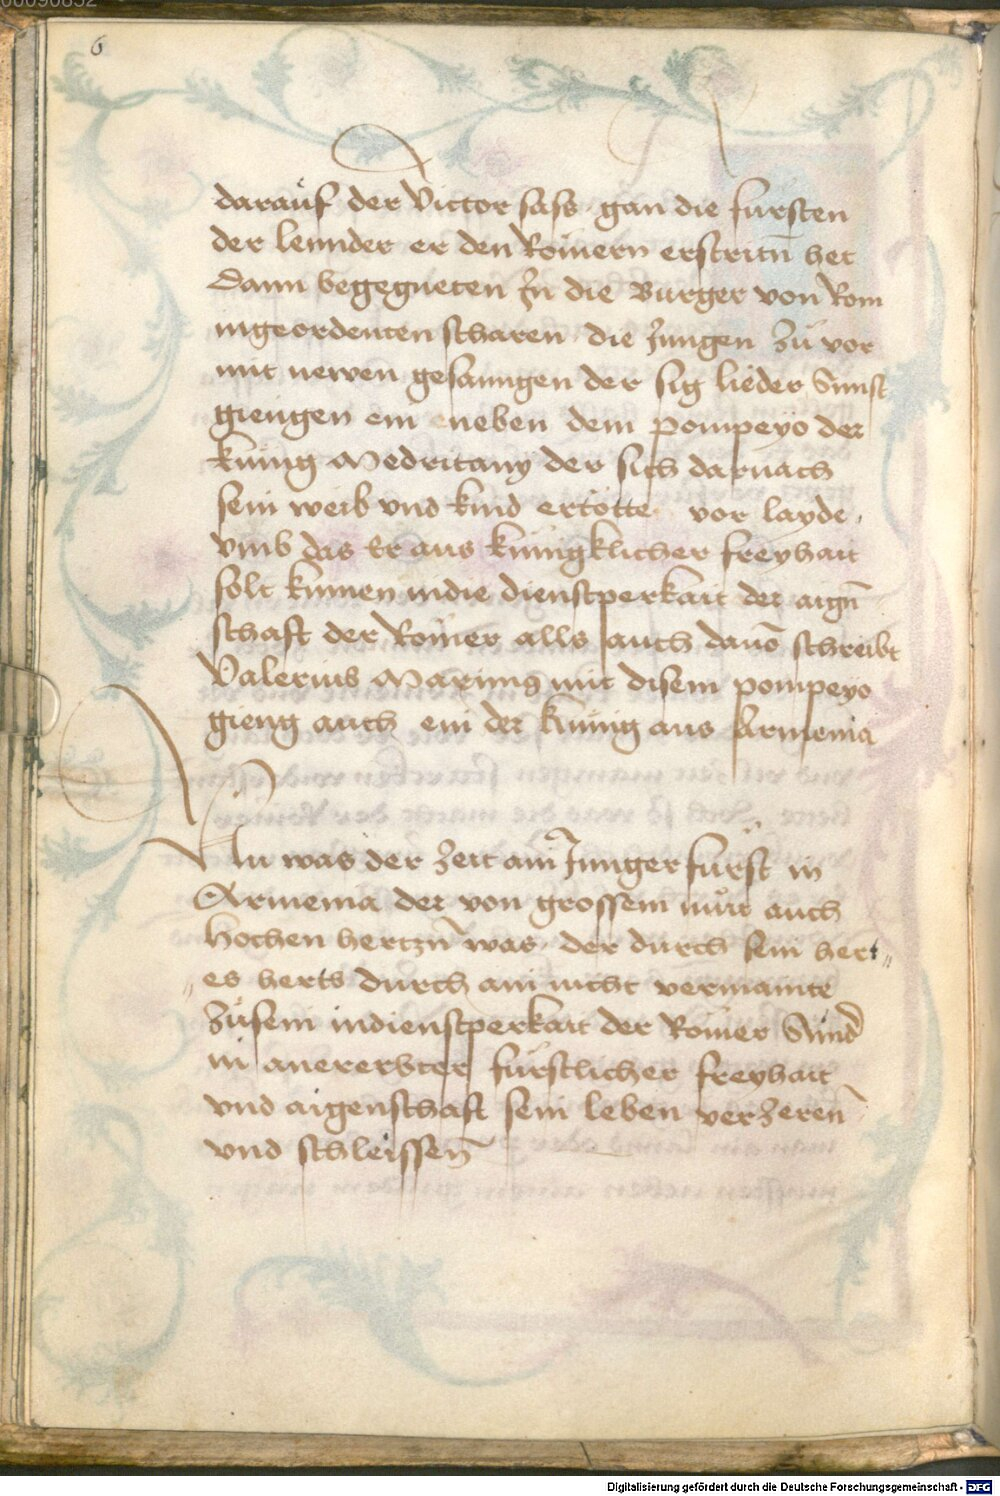 6
darauf der Victor sass gan die fursten
der lennder er den Romern erstritn̄ het
Dann begegneten Jn die Burger von Rom
ingeordenten scharen die Jungen zu vor
mit newen gesanngen der sig lieder Sunst
giengen ein neben dem pompeyo der
kunig Medritany der sich darnach
sein weib vnd kind ertötte vor layde
vmb das Er aus kunigklicher freyhait
solt kumen indie dienstperkait der aign̄
schaft der Romer alls auch dauō schreibt
Valerius Maximus mit disem pompeyo
gieng auch ein der kunig aus Armenia
Nu was der zeit ain Junger furst in
Armenia der von grossem mut auch
hochen hertzn̄ was der durch sein hert
es herts durch ain nicht vermainte
zusein indienstperkait der Romer Sund̄
in anererbter furstlicher freyhait
vnd aigenschaft sein leben verzeren̄
vnd schleissen̄
Digitalisierung gefördert durch die Deutsche Forschungsgemeinschaft - DFG